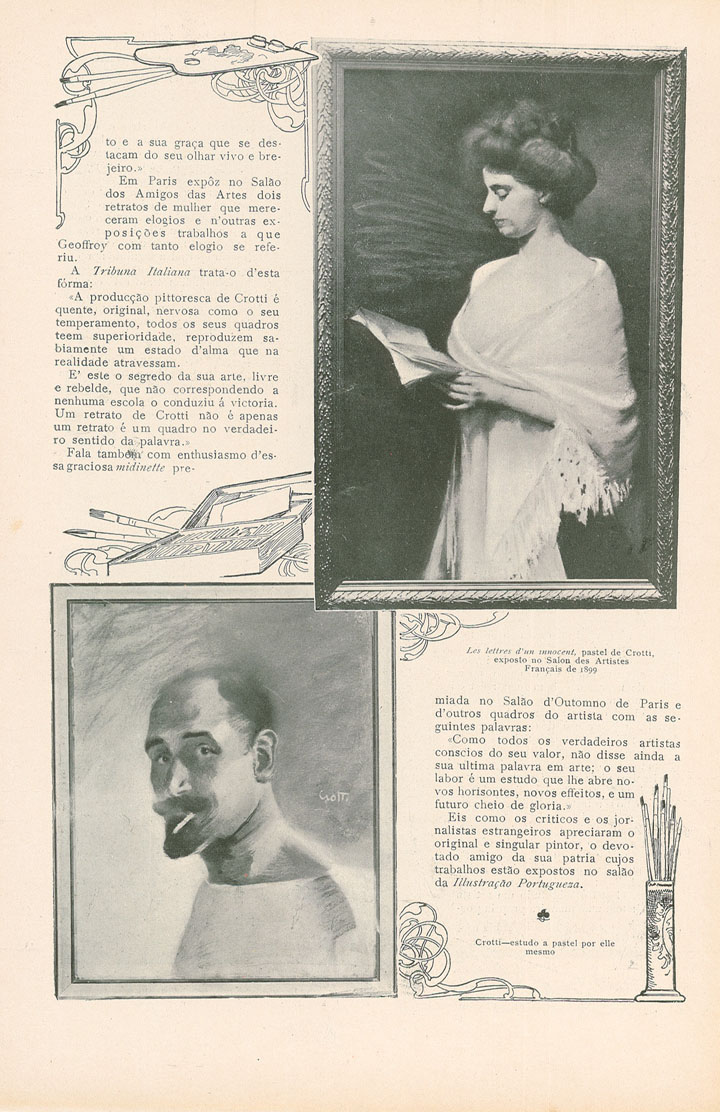 to e a sua graça que se des-
tacam do seu olhar vivo e bre-
jeiro.»
Em Paris expôz no Salão
dos Amigos das Artes dois
retratos de mulher que mere-
ceram elogios e n'outras ex-
posições trabalhos a que
Geoffroy com tanto elogio se refe-
riu.
A Tribuna Italiana trata-o d'esta
fórma:
«A producção pittoresca de Crotti é
quente, original, nervosa como o seu
temperamento, todos os seus quadros
teem superioridade, reproduzem sa-
biamente um estado d'alma que na
realidade atravessam.
E' este o segredo da sua arte, livre
e rebelde, que não correspondendo a
nenhuma escola o conduziu á victoria.
Um retrato de Crotti não é apenas
um retrato é um quadro no verdadei-
ro sentido da palavra.»
Fala tambem com enthusiasmo d'es-
sa graciosa midinette pre-
Les lettres d'un innocent, pastel de Crotti,
exposto no Salon des Artistes
Français de 1899
miada no Salão d'Outomno de Paris e
d'outros quadros do artista com as se-
guintes palavras:
«Como todos os verdadeiros artistas
conscios do seu valor, não disse ainda a
sua ultima palavra em arte; o seu
labor é um estudo que lhe abre no-
vos horisontes, novos effeitos, e um
futuro cheio de gloria.»
Eis como os criticos e os jor-
nalistas estrangeiros apreciaram o
original e singular pintor, o devo-
tado amigo da sua patria cujos
trabalhos estão expostos no salão
da Illustração Portugueza.
Crotti
Crotti—estudo a pastel por elle
mesmo